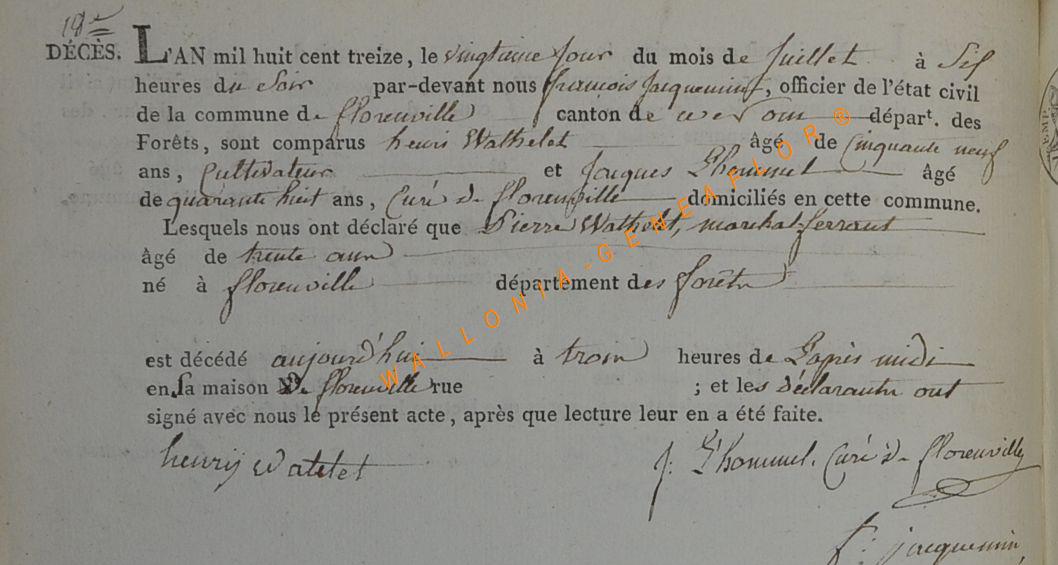 18e
DÉCÈS. L'AN mil huit cent treize, le vingtième jour du mois de Juillet à Six
heures du Soir par-devant nous françois Jacqueminet, officier de l'état civil
de la commune de florenville canton de départ. des
Forêts, sont comparus henri Wathelet âgé de Cinquante neuf
ans, Cultivateur et Jacques Lhommel âgé
de quarante huit ans, Curé de florenville domiciliés en cette commune.
Lesquels nous ont déclaré que Pierre Wathelet, marchal ferrant
âgé de trente ans
né à florenville département des forêts
est décédé aujourd'hui à trois heures de L'après midi
en sa maison De florenville rue ; et les déclarants ont
signé avec nous le présent acte, après que lecture leur en a été faite.
henry watelet J. Lhommel. Curé de florenville
f: jacquemin
WALLONIA-GENEAFLOR®